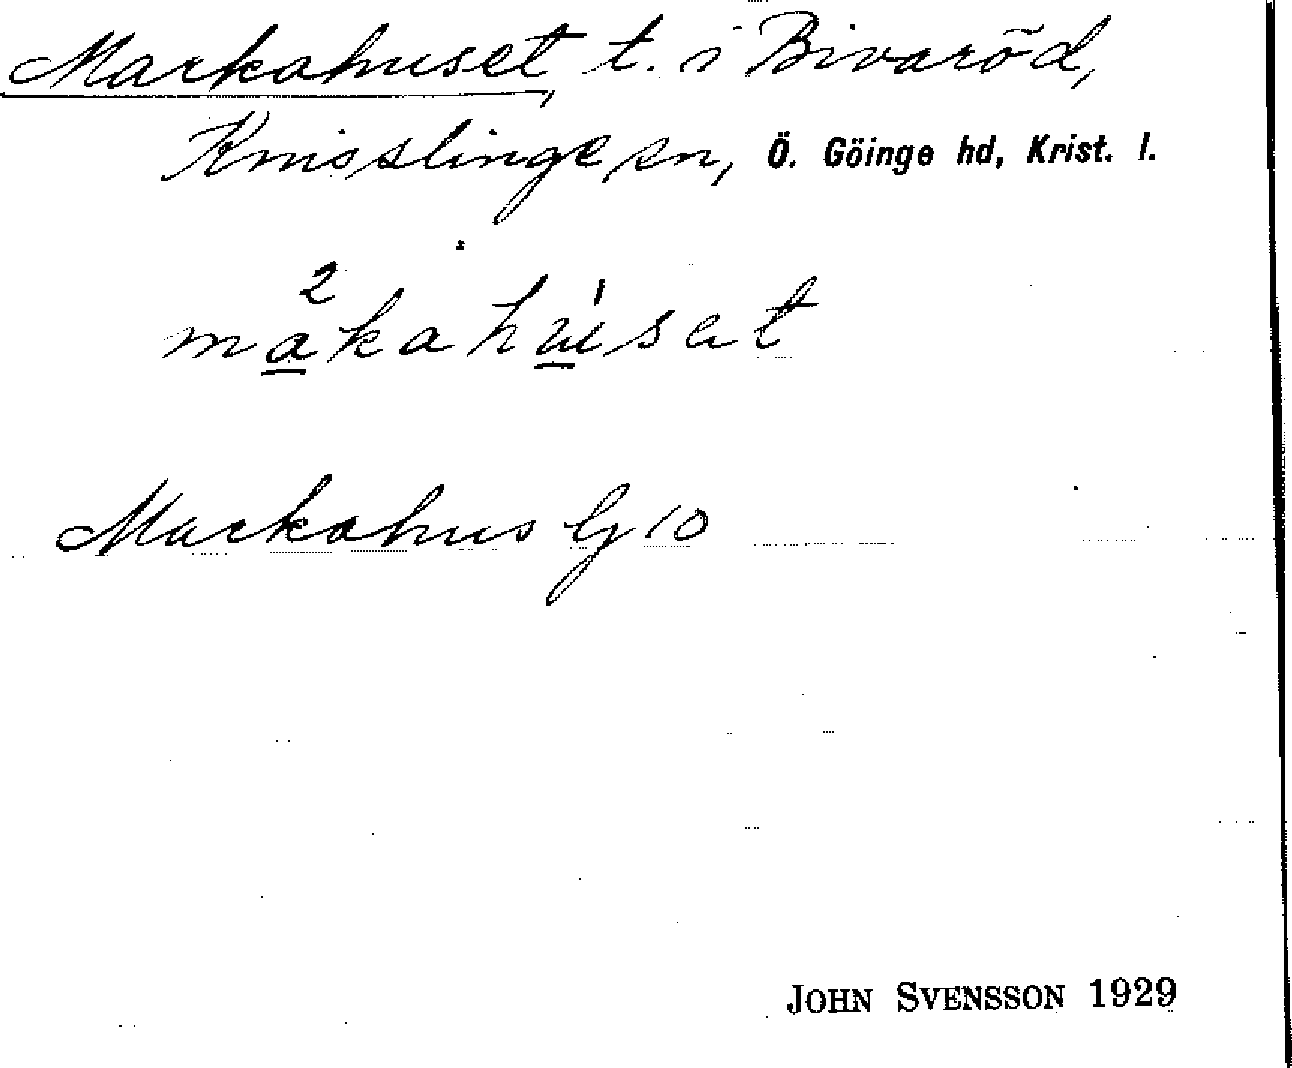 Markahuset, t. i Bivaröd,
Knisslinge sn, Ö. Göinge hd, Krist. l.
Markahus Gj 10
JOHN SVENSSON 1929